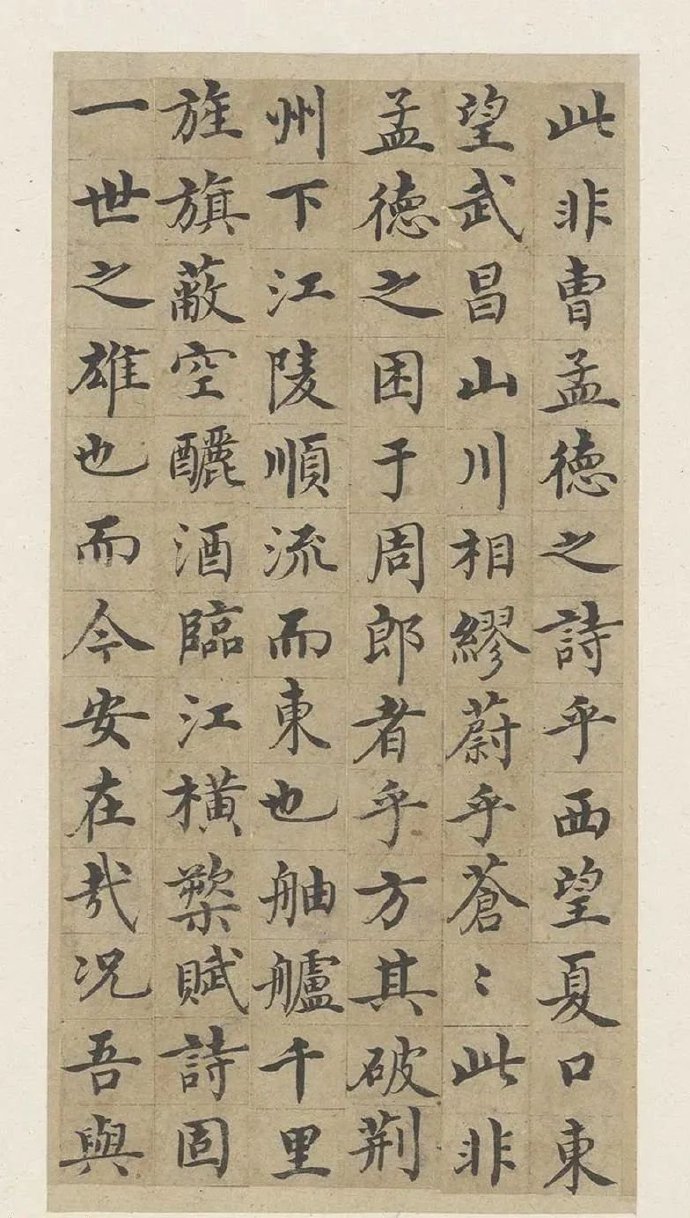 此非曹孟德之詩乎西望夏口東
望武昌山川相繆蔚乎蒼〻此非
孟德之困于周郎者乎方其破荆
州下江陵順流而東也舳艫千里
旌旗蔽空釃酒臨江橫槊賦詩固
一世之雄也而今安在哉况吾與